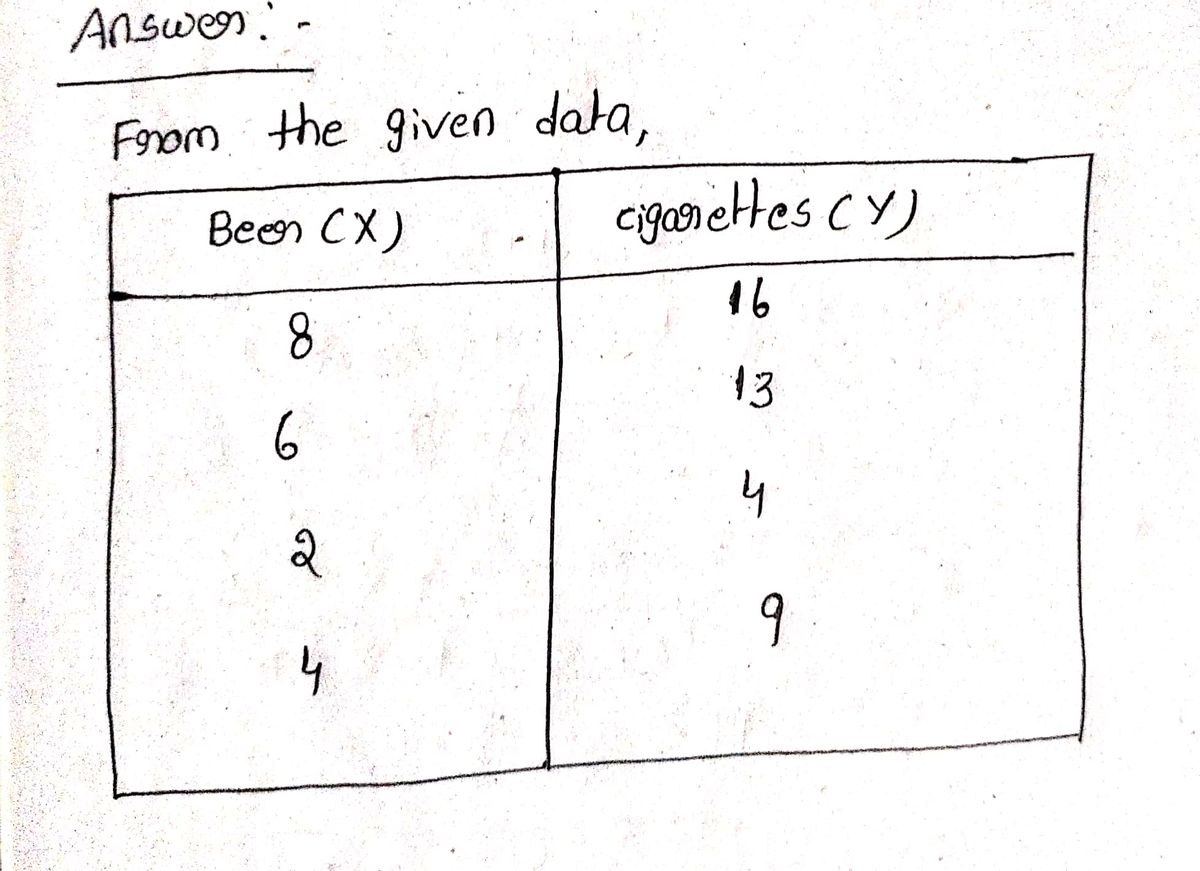 Answer:-
From the given data,
Beer (X) cigarettes (Y)
8 16
6 13
2 4
4 9